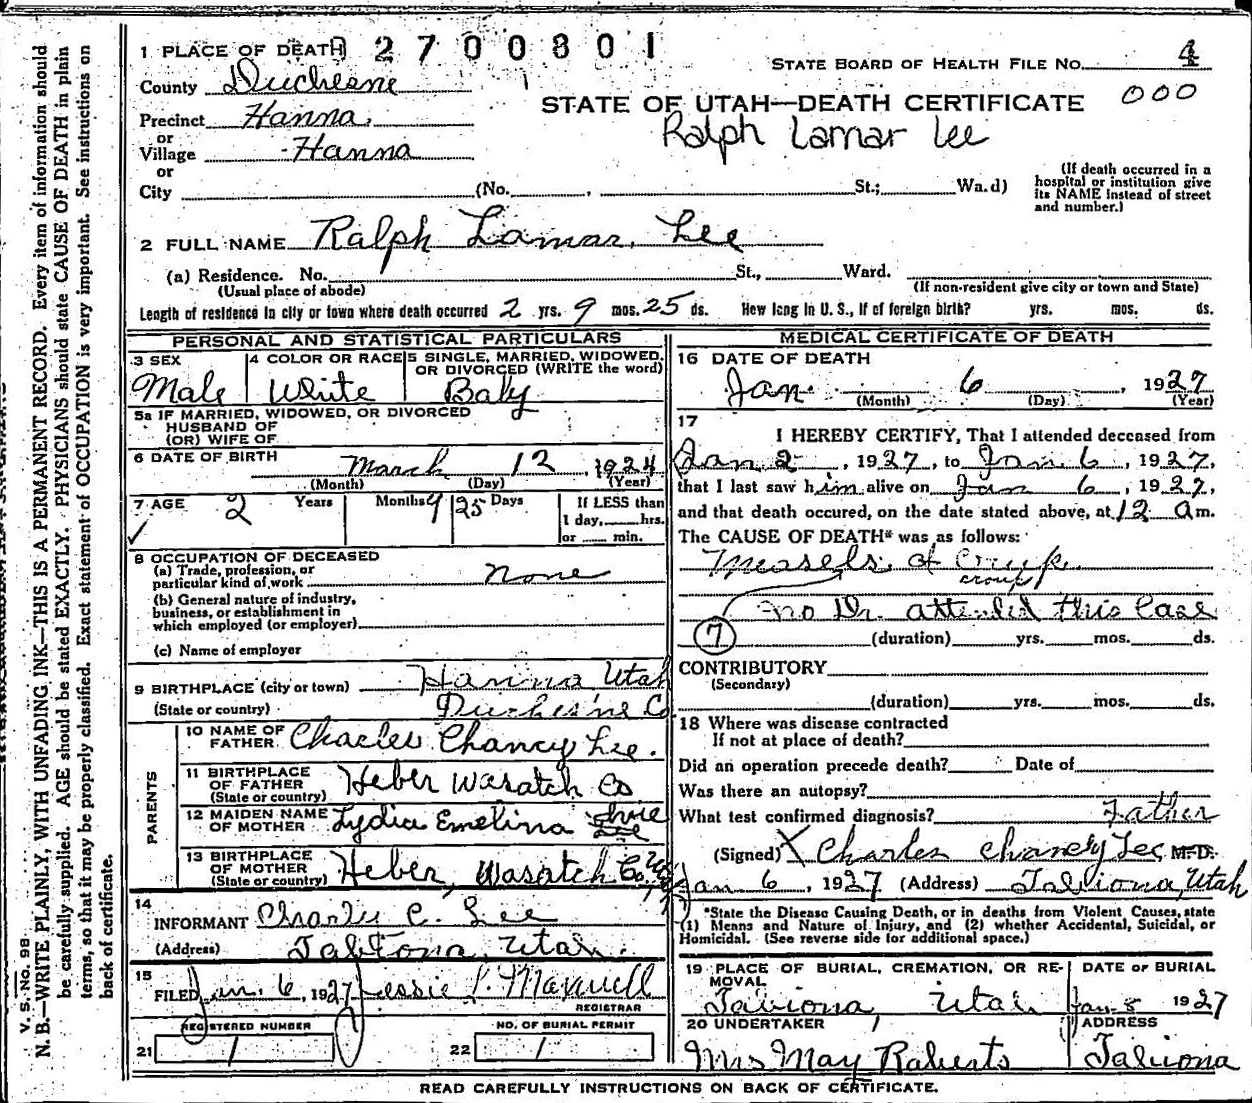 V. S. No. 98
N. B.—WRITE PLAINLY, WITH UNFADING INK—THIS IS A PERMANENT RECORD. Every item of information should
be carefully supplied. AGE should be stated EXACTLY. PHYSICIANS should state CAUSE OF DEATH in plain
terms, so that it may be properly classified. Exact statement of OCCUPATION is very important. See instructions on
back of certificate.
1 PLACE OF DEATH 2700801
STATE BOARD OF HEALTH FILE NO. 4
County Duchesne
STATE OF UTAH—DEATH CERTIFICATE 000
Precinct Hanna.
Ralph Lamar Lee
or
Village Hanna
or
City (No. , St.; Wa.d)
(If death occurred in a
hospital or institution give
its NAME instead of street
and number.)
2 FULL NAME Ralph Lamar. Lee
(a) Residence. No. St., Ward.
(Usual place of abode) (If non-resident give city or town and State)
Length of residence in city or town where death occurred 2 yrs. 9 mos. 25 ds. How long in U. S., if of foreign birth? yrs. mos. ds.
PERSONAL AND STATISTICAL PARTICULARS
3 SEX
Male
4 COLOR OR RACE
White
5 SINGLE, MARRIED, WIDOWED,
OR DIVORCED (WRITE the word)
Baby
5a IF MARRIED, WIDOWED, OR DIVORCED
HUSBAND OF
(OR) WIFE OF
6 DATE OF BIRTH March 12, 1924
(Month) (Day) (Year)
7 AGE 2 Years Months 9 25 Days
If LESS than
1 day, hrs.
or min.
8 OCCUPATION OF DECEASED
(a) Trade, profession, or
particular kind of work none
(b) General nature of industry,
business, or establishment in
which employed (or employer)
(c) Name of employer
9 BIRTHPLACE (city or town) Hanna Utah
(State or country) Duchesne Co
PARENTS
10 NAME OF
FATHER Charles Chancy Lee.
11 BIRTHPLACE
OF FATHER Heber Wasatch Co
(State or country)
12 MAIDEN NAME
OF MOTHER Lydia Emelina
13 BIRTHPLACE
OF MOTHER Heber, Wasatch Co,
(State or country)
14
INFORMANT Charlie C. Lee
(Address) Tabiona, Utah.
15
FILED Jan. 6, 1927 Jessie Maxwell
REGISTRAR
REGISTERED NUMBER
21 1
NO. OF BURIAL PERMIT
22 1
MEDICAL CERTIFICATE OF DEATH
16 DATE OF DEATH
Jan. 6, 1927
(Month) (Day) (Year)
17
I HEREBY CERTIFY, That I attended deceased from
Jan 2, 1927, to Jan 6, 1927,
that I last saw him alive on Jan 6, 1927,
and that death occured, on the date stated above, at 12 am.
The CAUSE OF DEATH* was as follows:
Measels & Croup
croup
no Dr. attended this Case
7 (duration) yrs. mos. ds.
CONTRIBUTORY
(Secondary)
(duration) yrs. mos. ds.
18 Where was disease contracted
If not at place of death?
Did an operation precede death? Date of
Was there an autopsy?
What test confirmed diagnosis? Father
(Signed) X Charles Chancy Lee M.D.
Jan 6, 1927 (Address) Tabiona, Utah
*State the Disease Causing Death, or in deaths from Violent Causes, state
(1) Means and Nature of Injury, and (2) whether Accidental, Suicidal, or
Homicidal. (See reverse side for additional space.)
19 PLACE OF BURIAL, CREMATION, OR RE-
MOVAL
Tabiona, Utah
DATE OF BURIAL
Jan. 8 1927
20 UNDERTAKER
Mrs May Roberts
ADDRESS
Tabiona
READ CAREFULLY INSTRUCTIONS ON BACK OF CERTIFICATE.